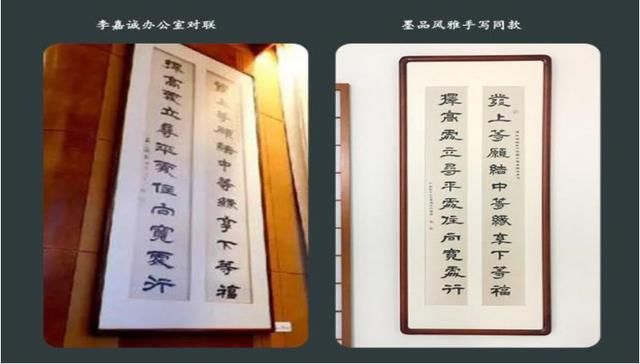 李嘉诚办公室对联
發上等願結中等緣享下等福
擇高處立尋平處住向寬處行
墨品风雅手写同款
發上等願結中等緣享下等福
擇高處立尋平處住向寬處行